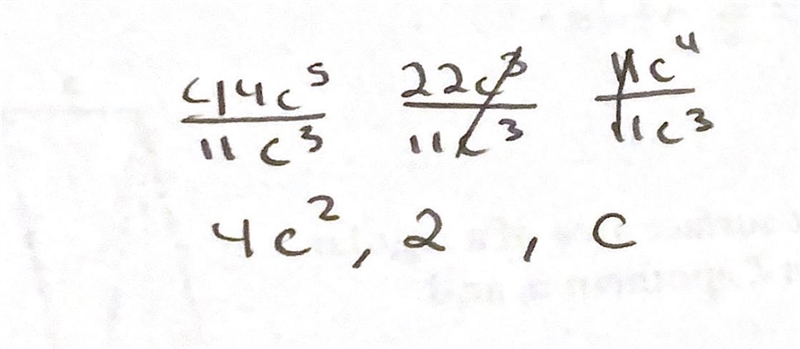 44c⁵/11c³ 22c³/11c³ 11c⁴/11c³
4c², 2, c